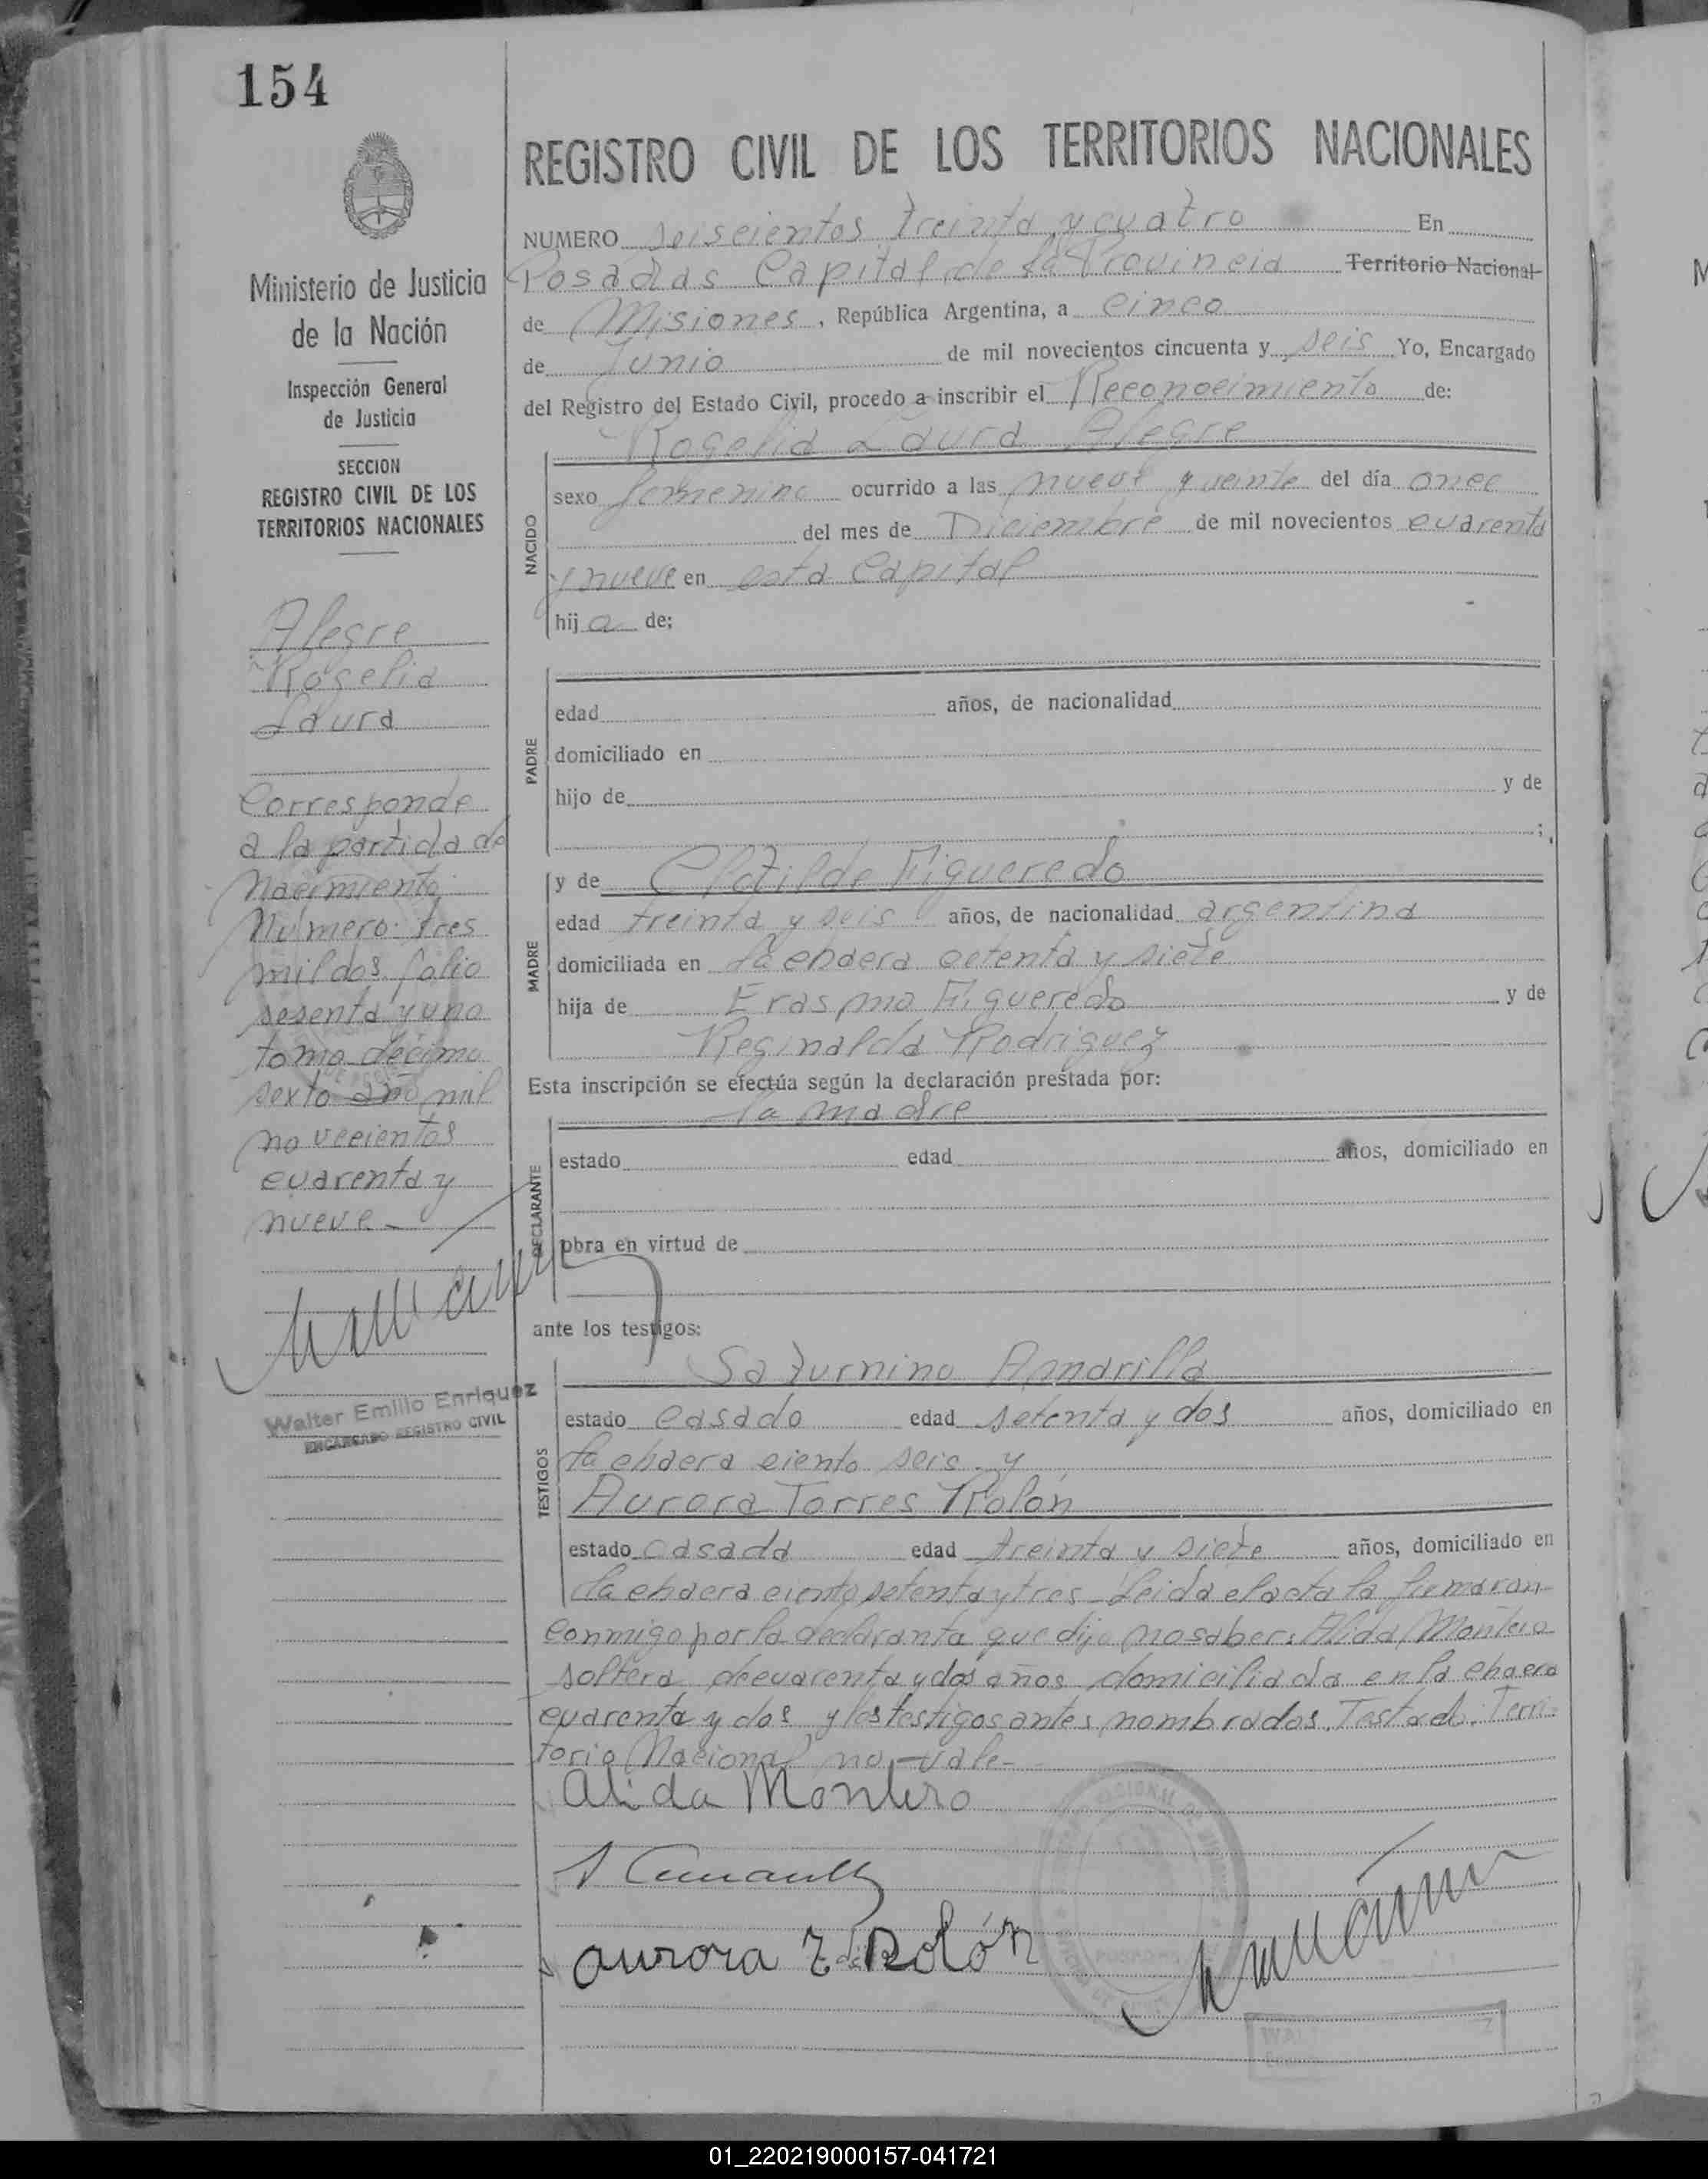 154
Ministerio de Justicia
de la Nación
Inspección General
de Justicia
SECCION
REGISTRO CIVIL DE LOS
TERRITORIOS NACIONALES
Alegre
Rogelia
Laura
Corresponde
a la partida de
Nacimiento
Número: tres
mil dos folio
sesenta y uno
tomo décimo
sexto año mil
novecientos
cuarenta y
nueve
Walter Emilio Enriquez
ENCARGADO REGISTRO CIVIL
REGISTRO CIVIL DE LOS TERRITORIOS NACIONALES
NUMERO seiscientos treinta y cuatro En
Posadas Capital de la Provincia Territorio Nacional
de Misiones, República Argentina, a cinco
de Junio de mil novecientos cincuenta y seis Yo, Encargado
del Registro del Estado Civil, procedo a inscribir el Reconocimiento de:
Rogelia Laura Alegre
NACIDO
sexo femenino ocurrido a las nueve y veinte del día once
del mes de Diciembre de mil novecientos cuarenta
y nueve en esta Capital
hija de:
PADRE
edad años, de nacionalidad
domiciliado en
hijo de y de
;
MADRE
y de Clotilde Figueredo
edad treinta y seis años, de nacionalidad argentina
domiciliada en la chacra setenta y siete
hija de Erasmo Figueredo y de
Reginalda Rodriguez
Esta inscripción se efectúa según la declaración prestada por:
la madre
DECLARANTE
estado edad años, domiciliado en
obra en virtud de
ante los testigos:
TESTIGOS
Saturnino Amarilla
estado casado edad setenta y dos años, domiciliado en
la chacra ciento seis y
Aurora Torres Rolón
estado casada edad treinta y siete años, domiciliado en
la chacra ciento setenta y tres Leida el acta la firmaron
conmigo por la declaranta que dijo no saber: Alida Montero
soltera de cuarenta y dos años domiciliada en la chacra
cuarenta y dos y los testigos antes nombrados. Testado: Terri-
torio Nacional no vale-
Alida Montero
Aurora T de Rolón
POSADAS
01_220219000157-041721